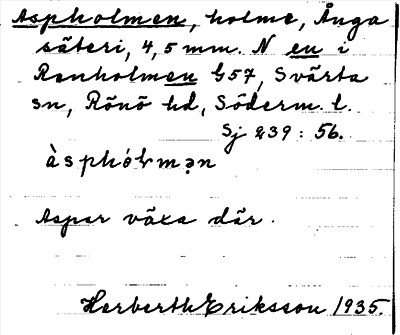 Aspholmen, holme, Ånga
säteri, 4,5 mm. N en i
Renholmen G57, Svärta
sn, Rönö hd, Söderm. l.
Sj 239 : 56.
àsphólmǝn
Aspar växa där.
Herberth Eriksson 1935.